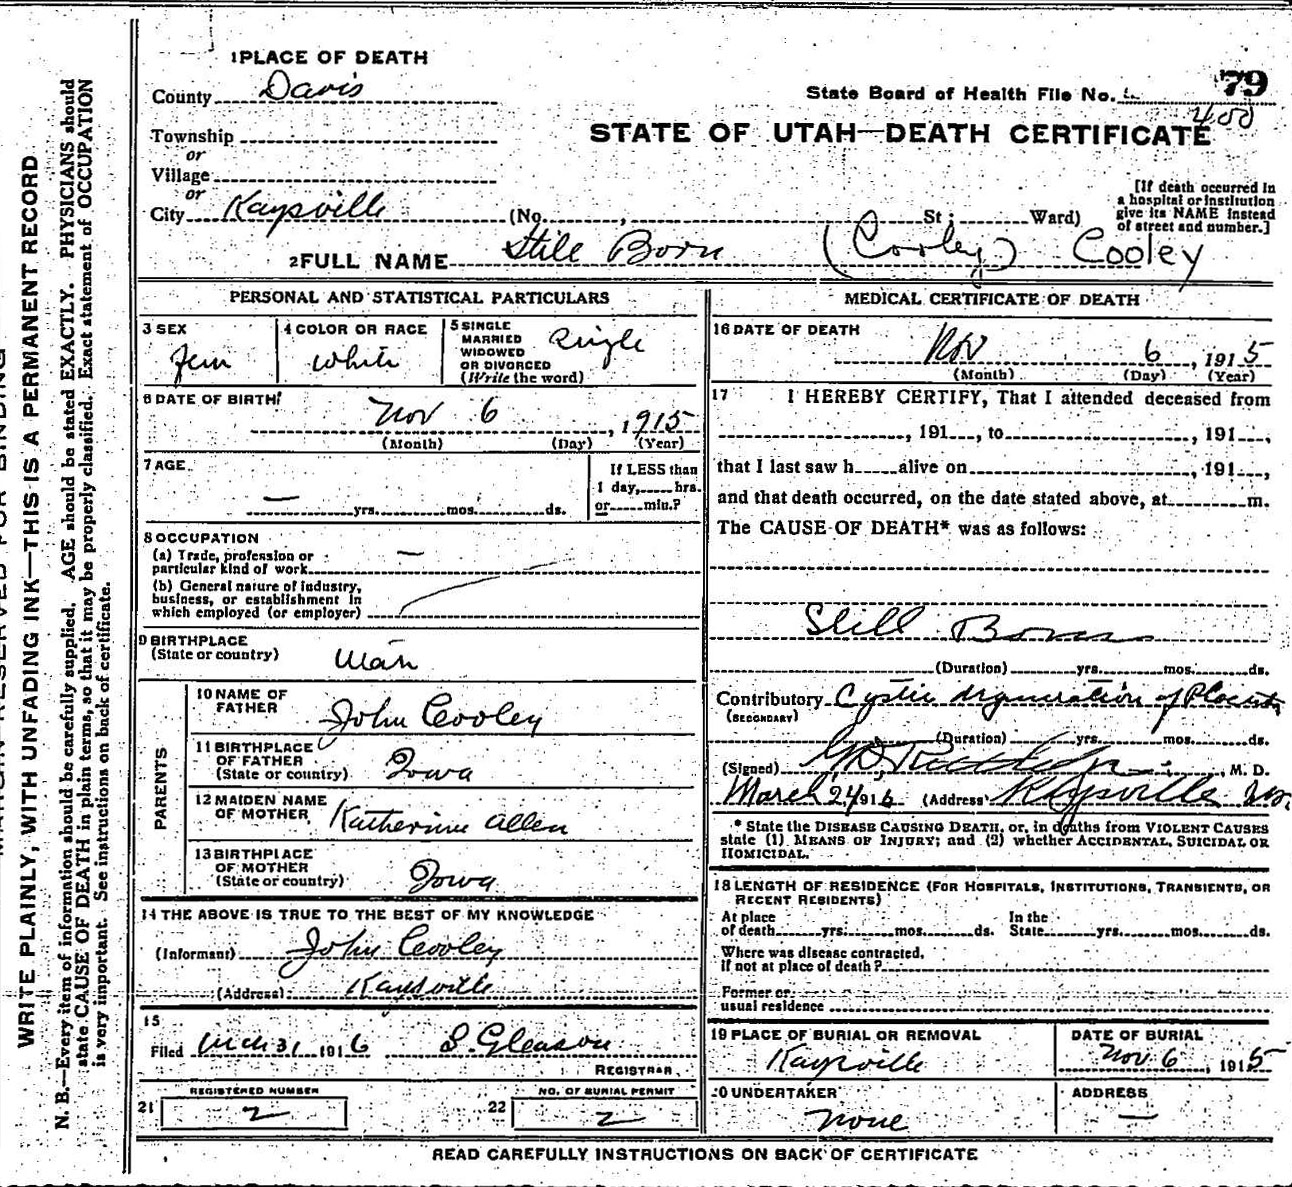 1 PLACE OF DEATH
County Davis
Township
or
Village
or
City Kaysville (No. , St ; Ward)
State Board of Health File No. 79
400
STATE OF UTAH—DEATH CERTIFICATE
[If death occurred in
a hospital or institution
give its NAME instead
of street and number.]
2 FULL NAME Still Born (Cooley) Cooley
PERSONAL AND STATISTICAL PARTICULARS
3 SEX
Fem
4 COLOR OR RACE
White
5 SINGLE
MARRIED
WIDOWED
OR DIVORCED
(Write the word)
Single
6 DATE OF BIRTH
Nov 6, 1915
(Month) (Day) (Year)
7 AGE
— yrs. mos. ds.
If LESS than
1 day, hrs.
or min.?
8 OCCUPATION
(a) Trade, profession or
particular kind of work —
(b) General nature of industry,
business, or establishment in
which employed (or employer)
9 BIRTHPLACE
(State or country) Utah
PARENTS
10 NAME OF
FATHER John Cooley
11 BIRTHPLACE
OF FATHER
(State or country) Iowa
12 MAIDEN NAME
OF MOTHER Katherine Allen
13 BIRTHPLACE
OF MOTHER
(State or country) Iowa
14 THE ABOVE IS TRUE TO THE BEST OF MY KNOWLEDGE
(Informant) John Cooley
(Address) Kaysville
15
Filed Mch 31 1916 S. Gleason
REGISTRAR
REGISTERED NUMBER
21 2
NO. OF BURIAL PERMIT
22 2
MEDICAL CERTIFICATE OF DEATH
16 DATE OF DEATH
Nov 6, 1915
(Month) (Day) (Year)
17 I HEREBY CERTIFY, That I attended deceased from
, 191 , to , 191 ,
that I last saw h alive on , 191 ,
and that death occurred, on the date stated above, at m.
The CAUSE OF DEATH* was as follows:
Still Born
(Duration) yrs. mos. ds.
Contributory Cystic degeneration of Placenta
(SECONDARY)
(Duration) yrs. mos. ds.
(Signed) , M. D.
March 24 1916 (Address) Kaysville
* State the DISEASE CAUSING DEATH, or, in deaths from VIOLENT CAUSES
state (1) MEANS OF INJURY; and (2) whether ACCIDENTAL, SUICIDAL OR
HOMICIDAL.
18 LENGTH OF RESIDENCE (FOR HOSPITALS, INSTITUTIONS, TRANSIENTS, OR
RECENT RESIDENTS)
At place In the
of death yrs. mos. ds. State yrs. mos. ds.
Where was disease contracted,
if not at place of death?
Former or
usual residence
19 PLACE OF BURIAL OR REMOVAL
Kaysville
DATE OF BURIAL
Nov 6, 1915
20 UNDERTAKER
None
ADDRESS
—
READ CAREFULLY INSTRUCTIONS ON BACK OF CERTIFICATE
MARGIN RESERVED FOR BINDING
WRITE PLAINLY, WITH UNFADING INK—THIS IS A PERMANENT RECORD
N. B.—Every item of information should be carefully supplied. AGE should be stated EXACTLY. PHYSICIANS should
state CAUSE OF DEATH in plain terms, so that it may be properly classified. Exact statement of OCCUPATION
is very important. See instructions on back of certificate.